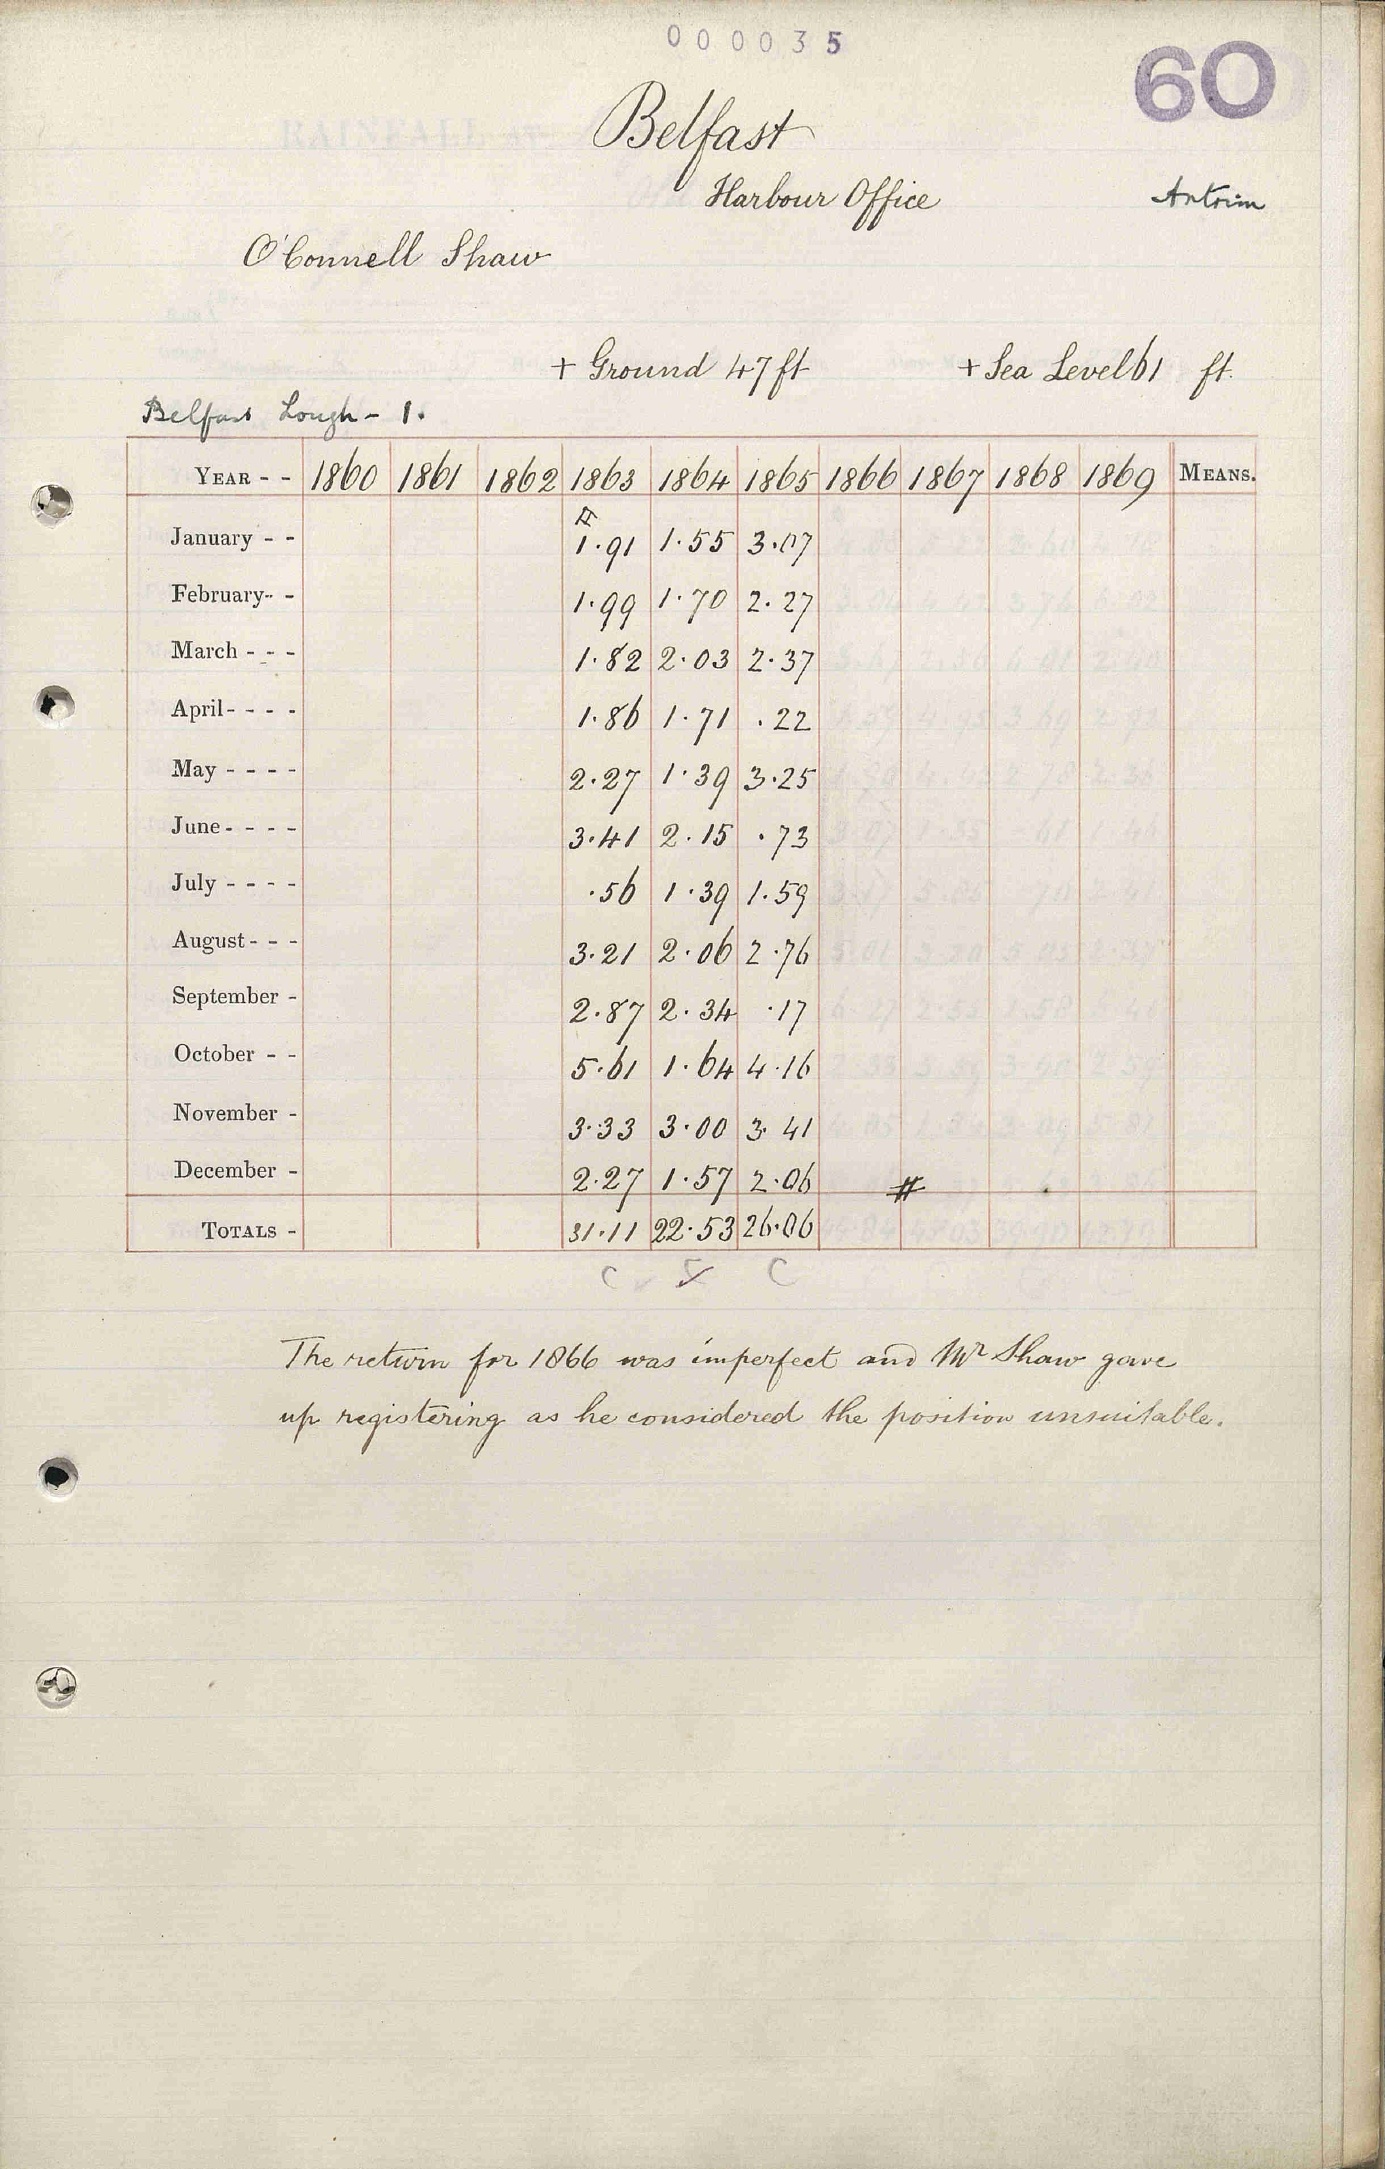 000035
60
Belfast
Harbour Office
Antrim
O'Connell Shaw
+ Ground 47 ft + Sea Level 61 ft.
Belfast Lough - 1.
YEAR - - 1860 1861 1862 1863 1864 1865 1866 1867 1868 1869 MEANS.
January - - 1.91 1.55 3.07
February - - 1.99 1.70 2.27
March - - - 1.82 2.03 2.37
April - - - - 1.86 1.71 .22
May - - - - 2.27 1.39 3.25
June - - - - 3.41 2.15 .73
July - - - - .56 1.39 1.59
August - - - 3.21 2.06 2.76
September - 2.87 2.34 .17
October - - 5.61 1.64 4.16
November - 3.33 3.00 3.41
December - 2.27 1.57 2.06 #
TOTALS - 31.11 22.53 26.06
C C
The return for 1866 was imperfect and Mr Shaw gave
up registering as he considered the position unsuitable.